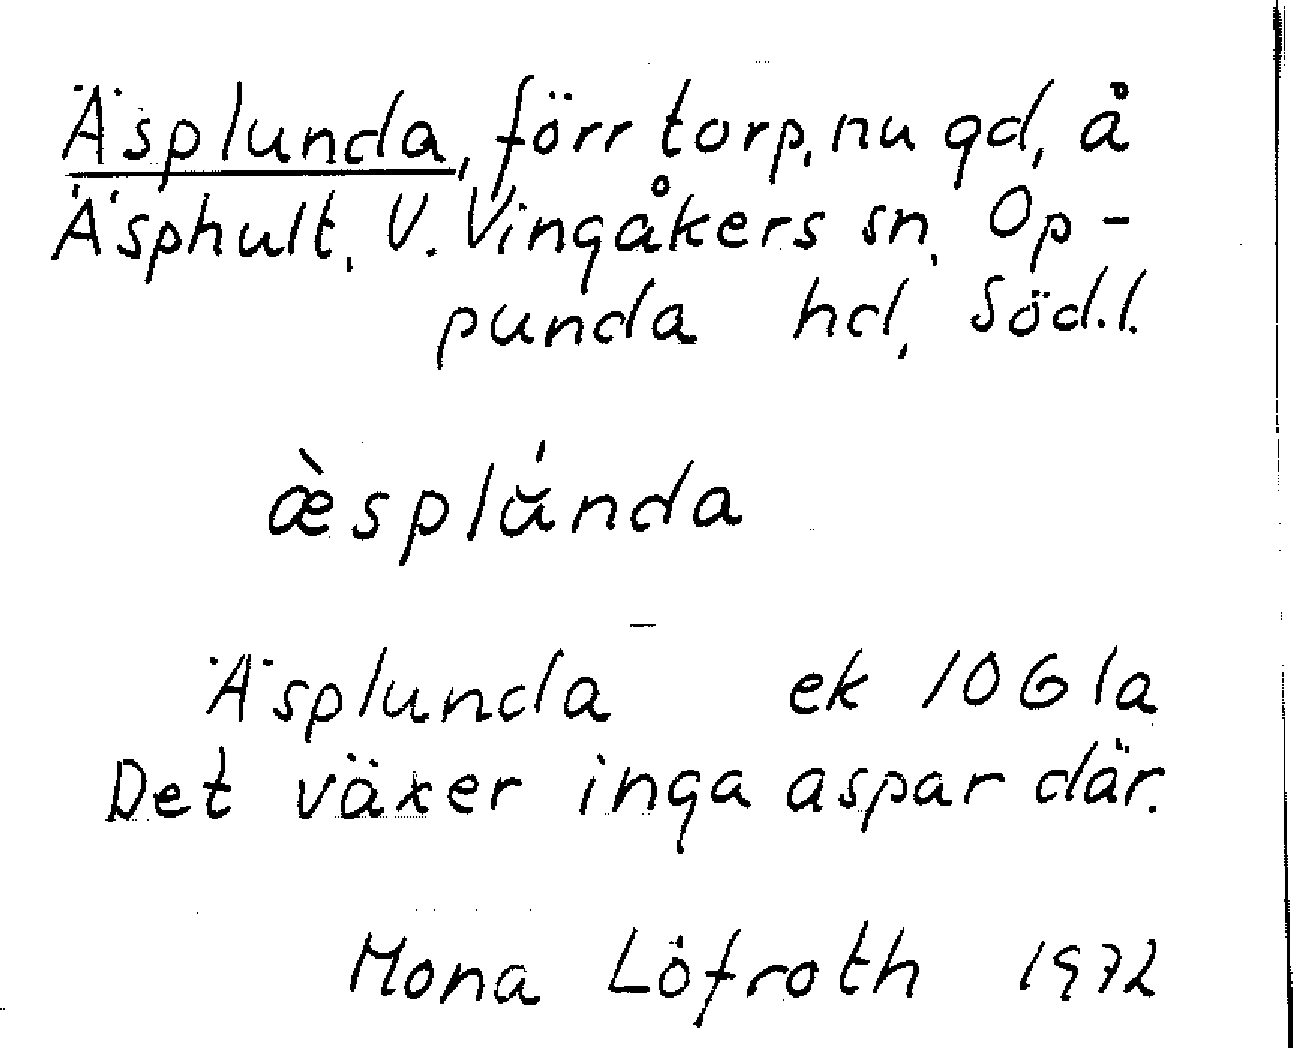 Äsplunda, förr torp, nu gd, å
Äsphult, V. Vingåkers sn, Op-
punda hd, Söd.l.
æ̀splŭ́nda
Äsplunda ek 10G1a
Det växer inga aspar där.
Mona Löfroth 1972